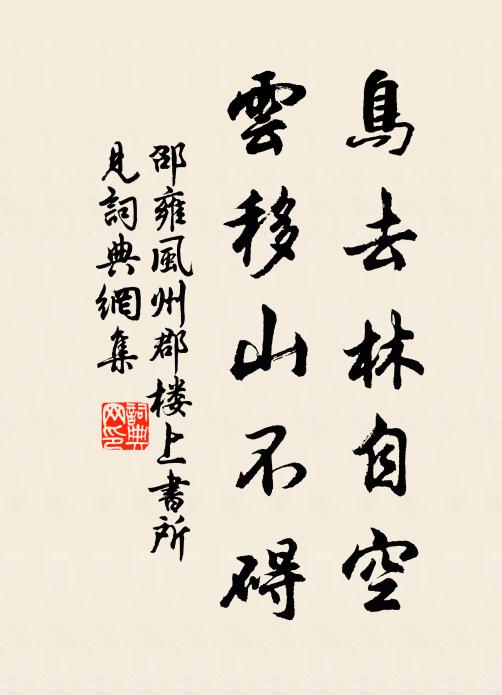 鳥去林自空
雲移山不碍
邵雍風州郡楼上書所
見詞典網集
詞典网印